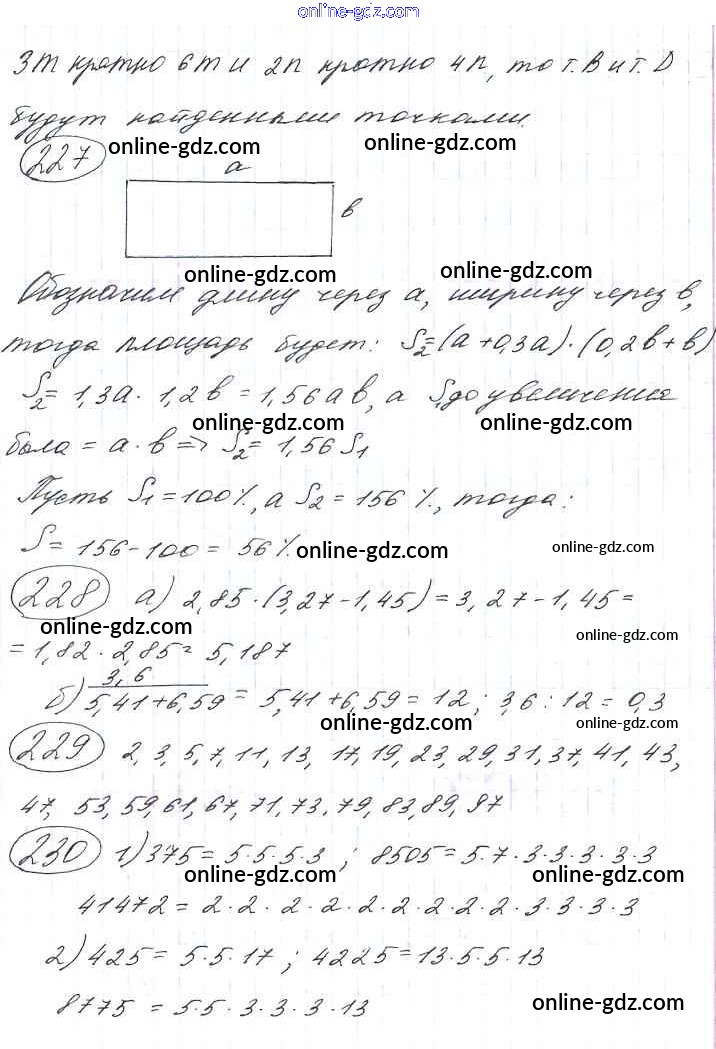 online-gdz.com
3m кратно 6m и 2n кратно 4n, то т. B и т. D
будут найденными точками.
online-gdz.com online-gdz.com
227
a
в
online-gdz.com online-gdz.com
Обозначим длину через a, ширину через в,
тогда площадь будет: S₂=(a+0,3a)·(0,2в+в)
S₂= 1,3a · 1,2в = 1,56aв, а S₁ до увеличения
online-gdz.com online-gdz.com
была = a·в => S₂= 1,56 S₁
Пусть S₁=100%, а S₂ = 156 %, тогда:
S= 156-100= 56% online-gdz.com online-gdz.com
228 а) 2,85·(3,27-1,45)=3,27-1,45=
online-gdz.com online-gdz.com
=1,82·2,85= 5,187
б) 3,6 / 5,41+6,59 = 5,41+6,59=12; 3,6:12=0,3
online-gdz.com online-gdz.com
229 2, 3, 5, 7, 11, 13, 17, 19, 23, 29, 31, 37, 41, 43,
47, 53, 59, 61, 67, 71, 73, 79, 83, 89, 97
230 1) 375= 5·5·5·3 ; 8505=5·7·3·3·3·3·3
online-gdz.com online-gdz.com
41472= 2·2·2·2·2·2·2·2·2·3·3·3·3
2) 425= 5·5·17 ; 4225=13·5·5·13
8775 = 5·5·3·3·3·13
online-gdz.com